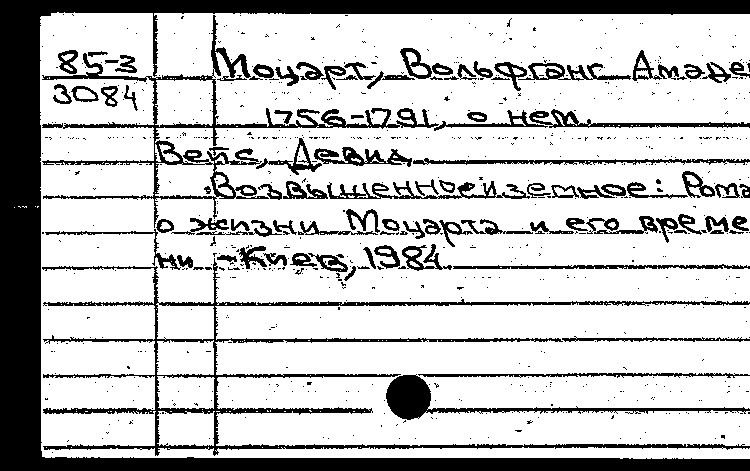 85-3
3084
Моцарт, Вольфганг Амаде
1756-1791, о нем.
Вейс, Девид.
Возвышенное и земное: Рома
о жизни Моцарта и его време
ни - Киев, 1984.